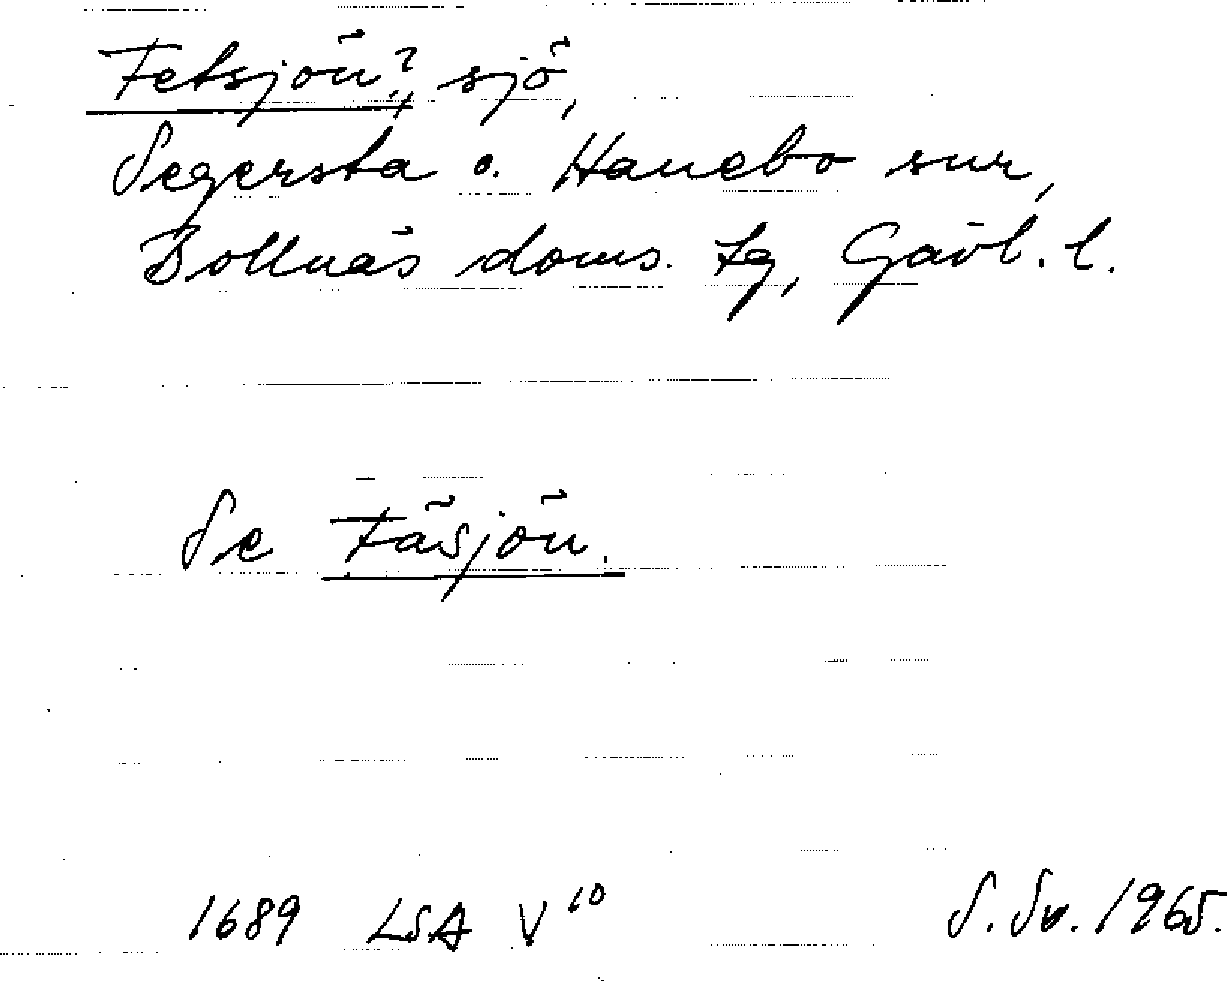 Fetsjön?, sjö,
Segersta o. Hanebo snr,
Bollnäs doms. tg, Gävl. l.
Se Fäsjön.
1689 LSA V 10 S. Sv. 1965.